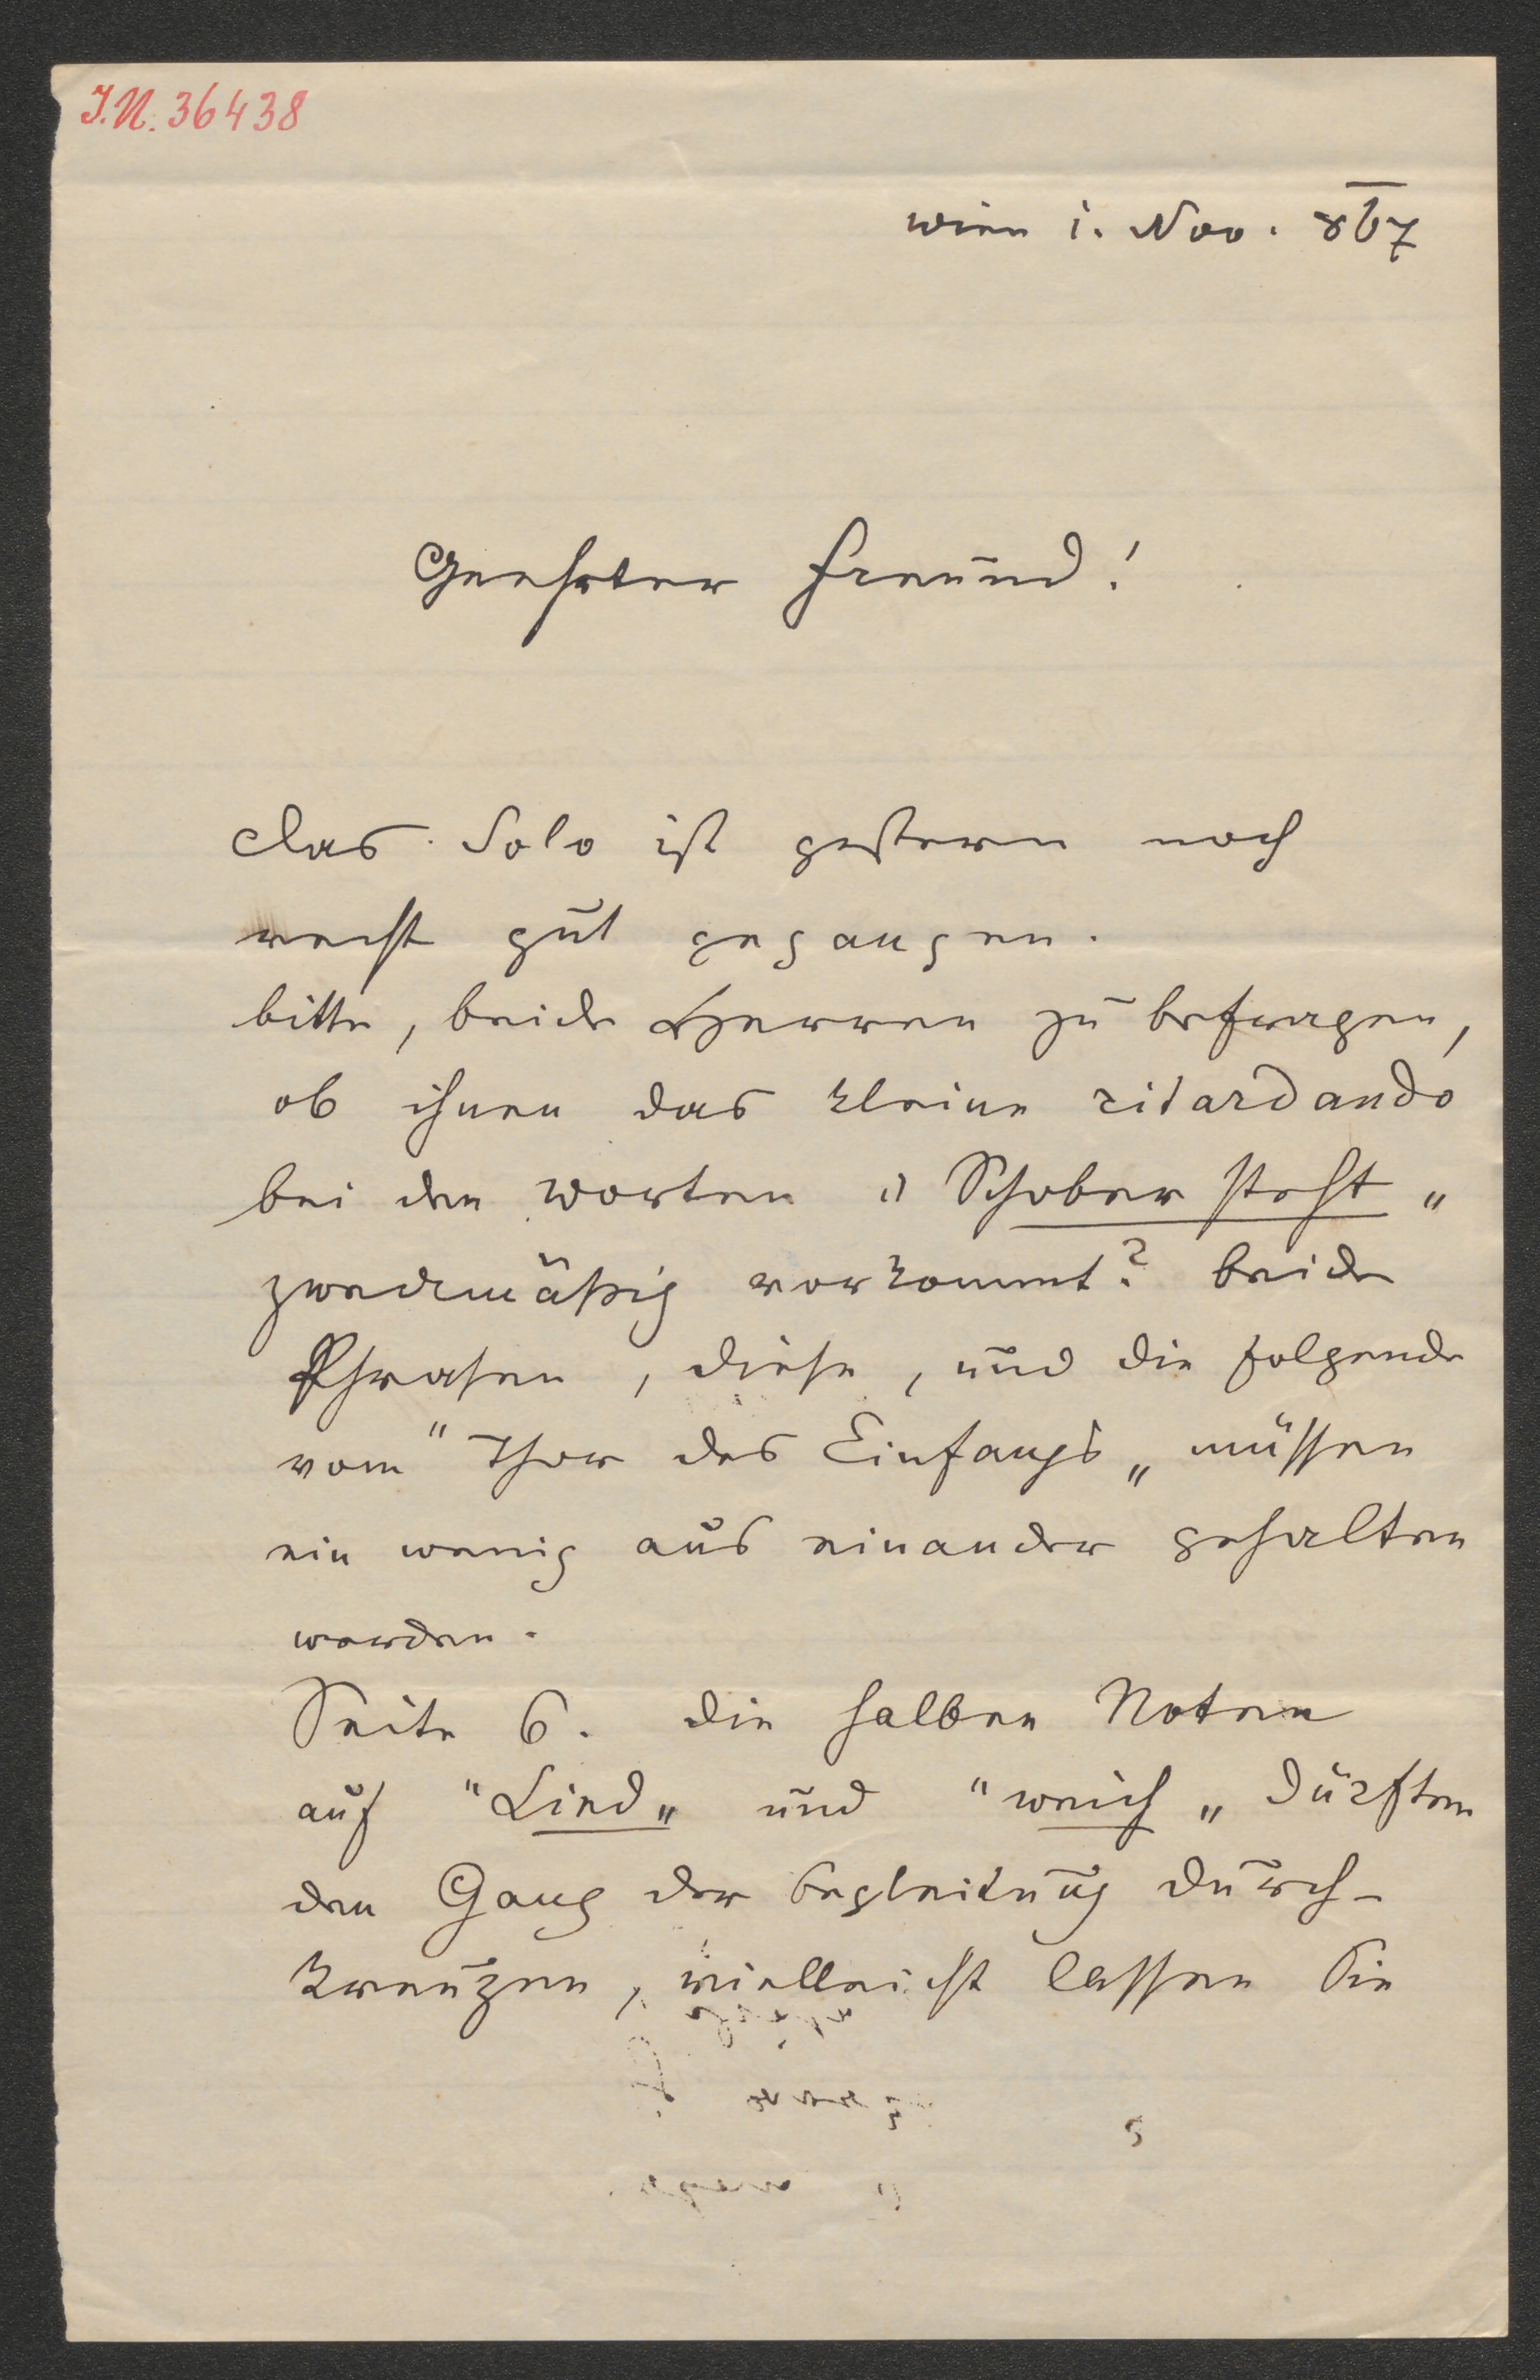 I.N. 36438
Wien 1. Nov. 867
Geehrter Freund!
Das Solo ist gestern noch
recht gut gegangen.
bitte, beide Herren zu befragen,
ob ihnen das kleine ritardando
bei den Worten "Schober steht"
zweckmäßig vorkommt? beide
Phrasen, diese, und die folgende
vom "Thor des Einfangs" müssen
ein wenig aus einander gehalten
werden.
Seite 6. die halben Noten
auf "Lind" und "weich" dürften
den Gang der Begleitung durch-
kreuzen, vielleicht lassen Sie